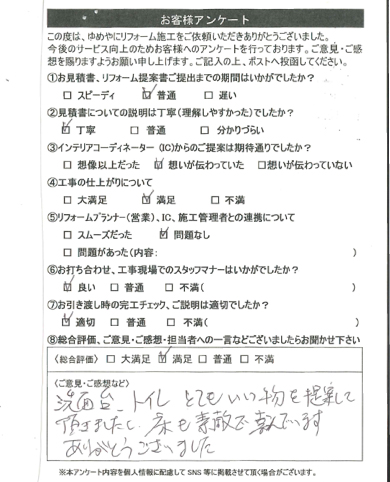 お客様アンケート
この度は、ゆめやにリフォーム施工をご依頼いただきありがとうございました。
今後のサービス向上のためお客様へのアンケートを行っております。ご意見・ご感
想を賜りますようお願い申し上げます。ご記入の上、ポストへ投函してください。
①お見積書、リフォーム提案書ご提出までの期間はいかがでしたか？
□ スピーディ ☑ 普通 □ 遅い
②見積書についての説明は丁寧(理解しやすかった)でしたか？
☑ 丁寧 □ 普通 □ 分かりづらい
③インテリアコーディネーター（IC）からのご提案は期待通りでしたか？
□ 想像以上だった ☑ 想いが伝わっていた □想いが伝わっていない
④工事の仕上がりについて
□ 大満足 ☑ 満足 □ 不満
⑤リフォームプランナー（営業）、IC、施工管理者との連携について
□ スムーズだった ☑ 問題なし
□ 問題があった(内容: )
⑥お打ち合わせ、工事現場でのスタッフマナーはいかがでしたか？
☑ 良い □ 普通 □ 不満( )
⑦お引き渡し時の完工チェック、ご説明は適切でしたか？
☑ 適切 □ 普通 □ 不満( )
⑧総合評価、ご意見・ご感想・担当者への一言などございましたらお聞かせ下さい
〈総合評価〉 □ 大満足 ☑ 満足 □ 普通 □ 不満
〈ご意見・ご感想など〉
洗面台、トイレ とてもいい物を提案して
頂きましたし、床も素敵で喜んでいます
ありがとうございました
※本アンケート内容を個人情報に配慮して SNS 等に掲載させて頂く場合がございます。